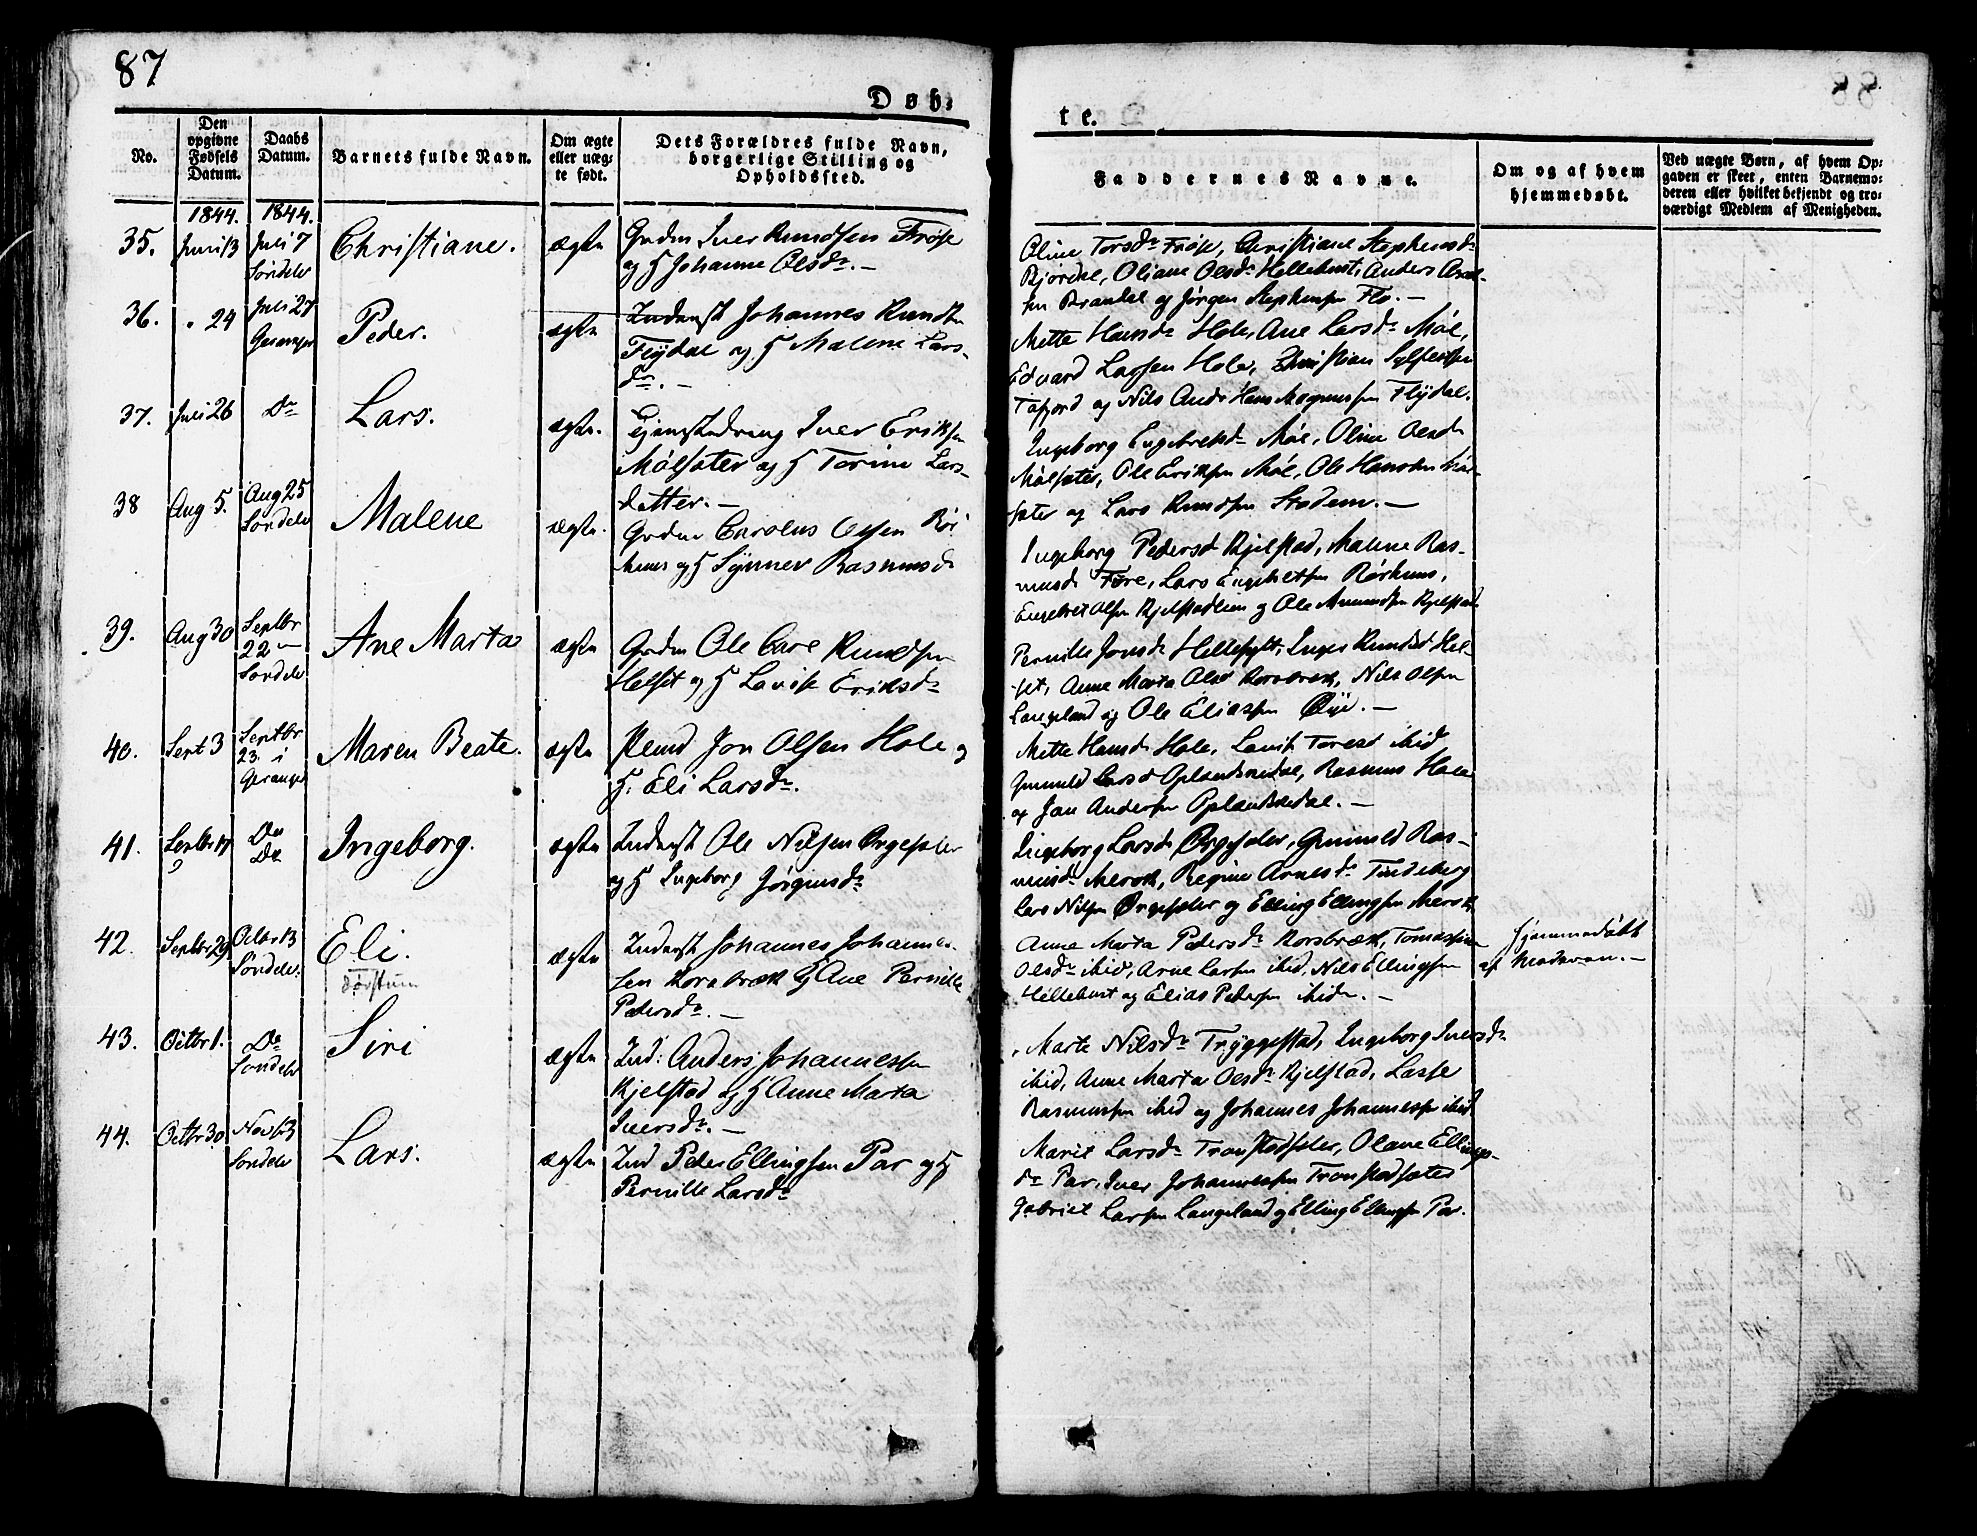 87
Døb-
te.
No.
Den opgivne Fødsels Datum.
Daabs Datum.
Barnets fulde Navn.
Om ægte eller uægte født.
Dets Forældres fulde Navn, borgerlige Stilling og Opholdssted.
Faddernes Navne.
Om og af hvem hjemmedøbt.
Ved uægte Børn, af hvem Opgaven er skeet, enten Barnemoderen eller hvilket bekjendt og troværdigt Medlem af Menigheden.
1844. 1844.
35. Juni 13 Juli 7 Christiane. ægte Iver Knudsen Frøse
og H Johanne Olsdr. -
Oline Torsdr Frøse, Christiane Stephensdr
Bjørdal, Oliane Olsdr Hellebust, Anders
Brandal og Jørgen Stephensen Flo. -
36. " 24 Juli 27 Peder. ægte Inderst Johannes Knudsen
Flydal og H Malene Lars-
dr. -
Mette Hansdr Hole, Ane Larsdr Møl,
Edvard Larsen Hole, Christian
Tafjord og Nils Hans Magnussen Flydal.
37. Juli 26 Do Lars. ægte. Iver Eriksen
Mølsæter og H Torine Lars-
datter. -
Ingeborg Engebretsdr Møl, Oline Olsdr
Mølsæter, Ole Eriksen Møl, Ole Hansen
sæter og Lars Knudsen Stadem. -
38 Aug 5. Aug 25 Malene ægte. Carolus Olsen
og H Synnev Rasmusd
Ingeborg Pedersd Kjelstad, Malene Ras-
musd Lars Engebretsen
Engebret Olsen Kjelstadlien og Ole Kjelstad
39. Aug 30 Septbr 22 Ane Marta ægte Ole Carl Knudsen
Helset og H Lavise Eriksdr
Pernille Jonsdr Hellesylt, Inger Knudsd Hel-
set, Anne Marta Olsd Korsbræk, Nils Olsen
Langeland og Ole Eliassen Øye. -
40. Sept 3 Septbr 23 i Geranger Maren Beate. ægte Jon Olsen Hole og
H. Eli Larsdr.
Mette Hansdr Hole, ibid
Gunnild Larsd Oplandskedal, Rasmus Hole
og Jon Andersen Oplandskedal. -
41. Septbr 17 Do Ingeborg. ægte Inderst Ole Nilsen Ørgesæter
og H Ingeborg Jørgensdr
Ingeborg Larsdr Ørgesæter, Gunnild Ras-
musdr Merok, Regine Arnesdr Tundeberg
Lars Nilsen Ørgesæter og Elling Ellingsen Merok
42. Septbr 29 Octbr 13 Eli. ægte Inderst Johannes Johannes-
sen Korsbræk H Ane Pernille
Pedersdr. -
Anne Marta Pedersdr Korsbræk,
Olsdr ibid, Arne Larsen ibid, Nils Ellingsen
Hellebust og Elias Pedersen ibid. -
Hjemmedøbt
af -
43. Octbr 1. Do Siri ægte Ind: Anders Johannessen
Kjelstad og H Anne Marta
Iversdr. -
Marte Nilsdr Tryggestad, Ingeborg Iversdr
ibid, Anne Marta Olsdr Kjelstad, Lasse
Rasmussen ibid og Johannes Johannessen ibid
44. Octbr 30 Lars. ægte Ind Peder Ellingsen Par og H
Pernille Larsdr
Marit Larsdr Tronstadsæter, Olave Ellings-
dr Par, Iver Johannessen Tronstadsæter
Gabriel Larsen Langeland og Elling Ellingsen Par.